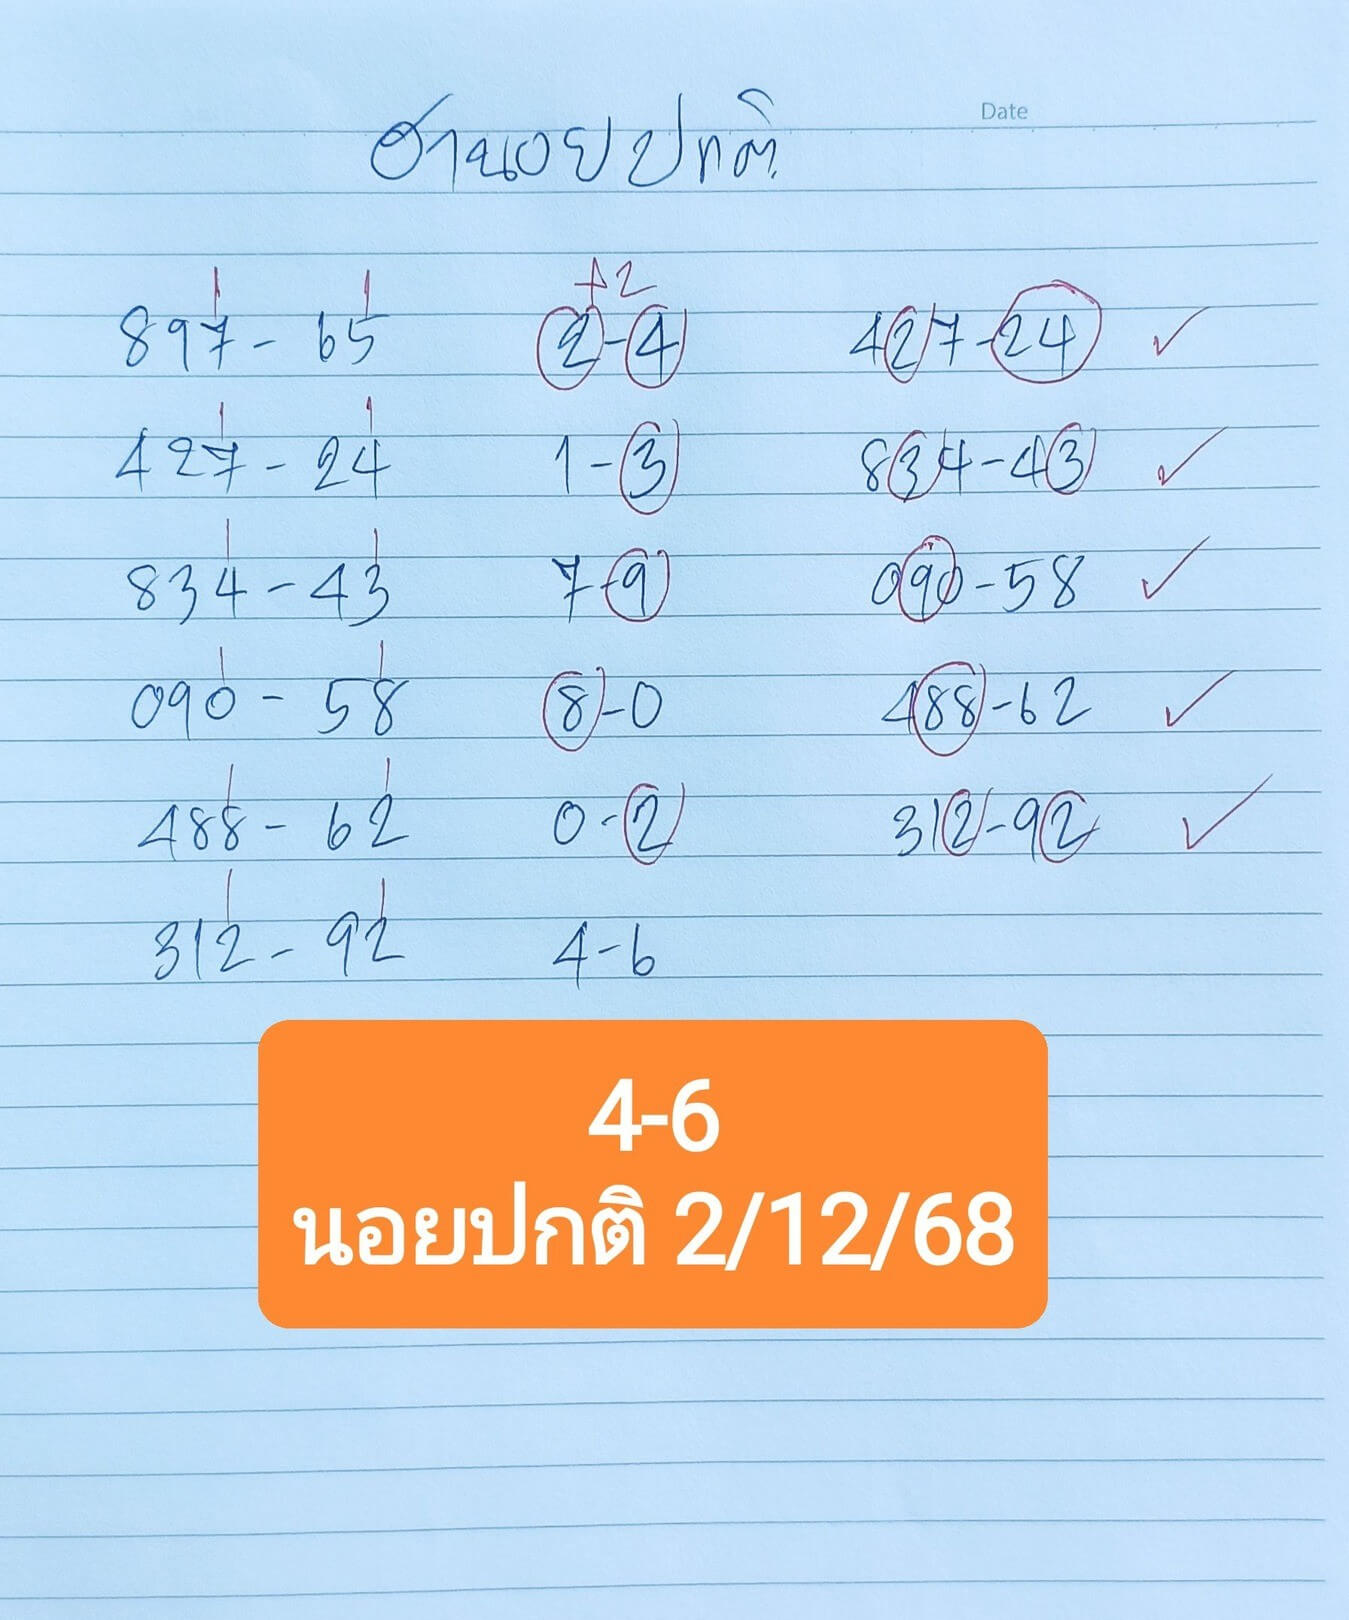 Date
ฮานอยปกติ
+2
897 - 65 2-4 427-24 ✓
427 - 24 1-3 834-43 ✓
834 - 43 7-9 090-58 ✓
090 - 58 8-0 488-62 ✓
488 - 62 0-2 312-92 ✓
312 - 92 4-6
4-6
นอยปกติ 2/12/68